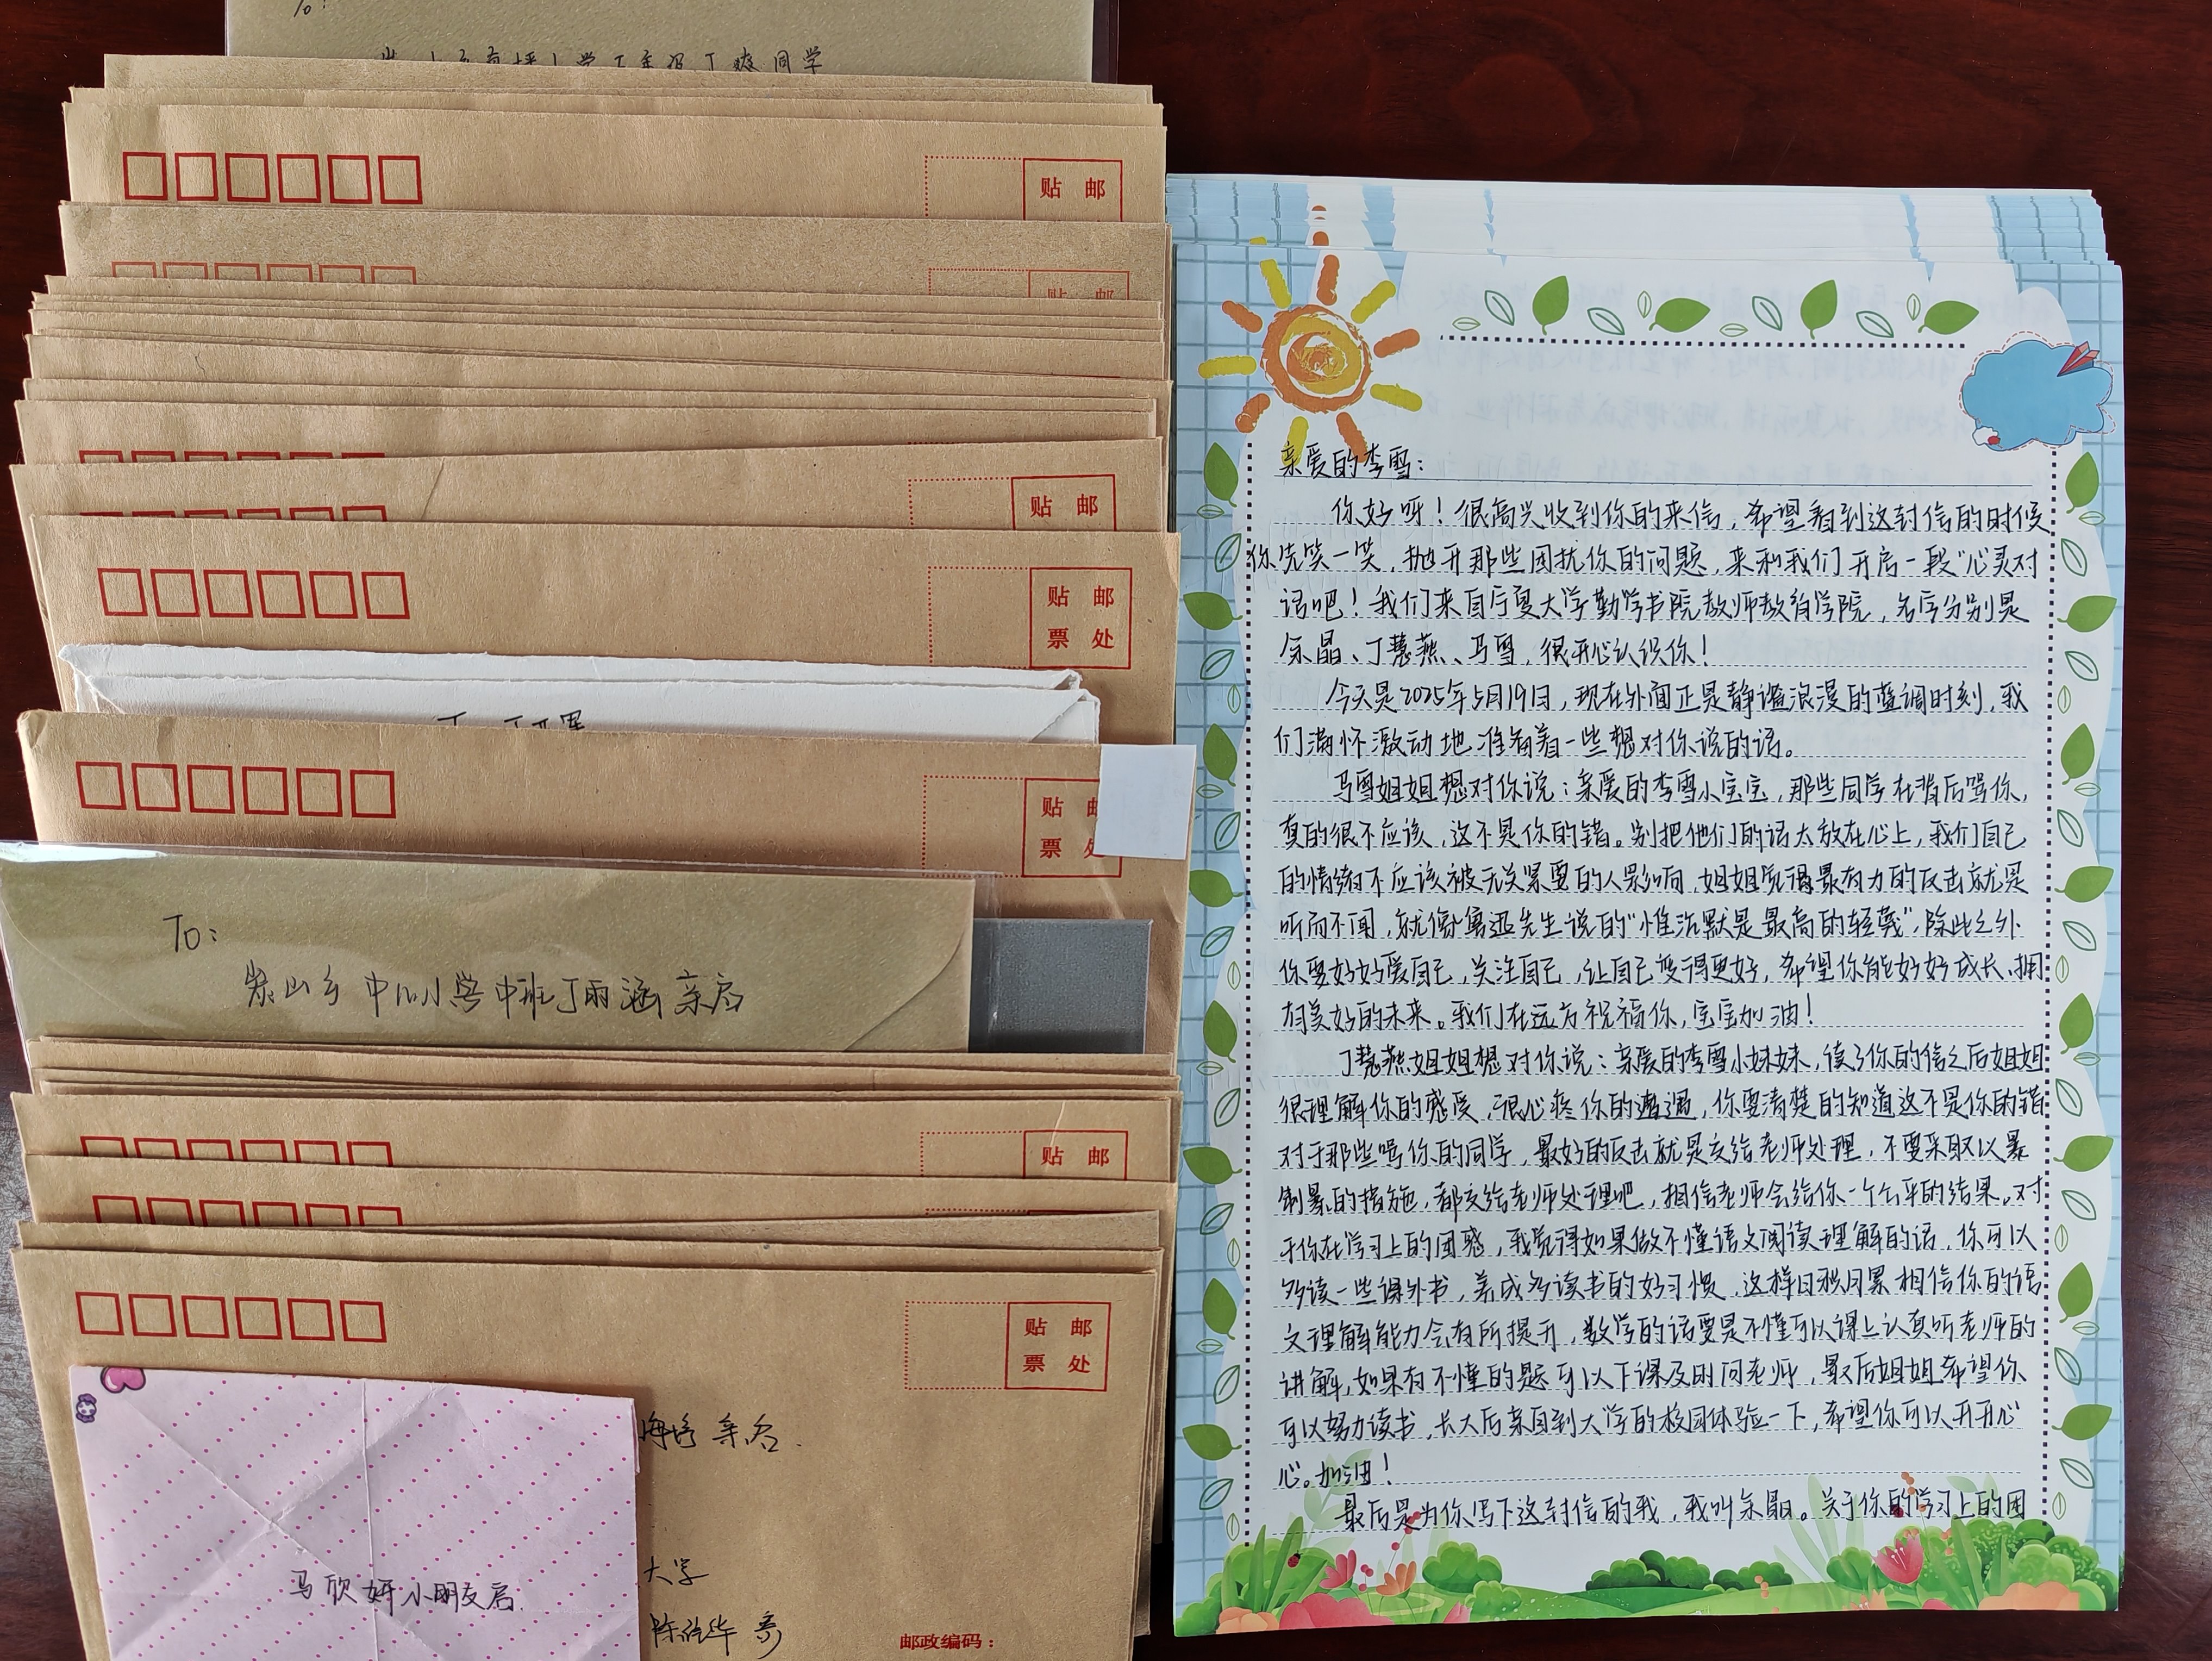 To:
贴 邮
贴 邮
贴 邮
贴 邮
票 处
贴 邮
票 处
To:
炭山乡中川小学中班丁雨涵亲启
贴 邮
贴 邮
票 处
亲启.
马欣妍小朋友启.
大学
邮政编码：
亲爱的李雪：
你好呀！很高兴收到你的来信，希望看到这封信的时候
你先笑一笑，抛开那些困扰你的问题，来和我们开启一段“心灵对
话吧！我们来自宁夏大学勤学书院教师教育学院，名字分别是
余晶、丁慧燕、马雪，很开心认识你！
今天是2025年5月19日，现在外面正是静谧浪漫的蓝调时刻，我
们满怀激动地准备着一些想对你说的话。
马雪姐姐想对你说：亲爱的李雪小宝宝，那些同学在背后骂你，
真的很不应该，这不是你的错。别把他们的话太放在心上，我们自己
的情绪不应该被无关紧要的人影响，姐姐觉得最有力的反击就是
听而不闻，就像鲁迅先生说的“惟沉默是最高的轻蔑”，除此之外
你要好好爱自己，关注自己，让自己变得更好，希望你能好好成长、拥
有美好的未来。我们在远方祝福你，宝宝加油！
丁慧燕姐姐想对你说：亲爱的李雪小妹妹，读了你的信之后姐姐
很理解你的感受，很心疼你的遭遇，你要清楚的知道这不是你的错
对于那些骂你的同学，最好的反击就是交给老师处理，不要采取以暴
制暴的措施，都交给老师处理吧，相信老师会给你一个公平的结果。对
于你在学习上的困惑，我觉得如果做不懂语文阅读理解的话，你可以
多读一些课外书，养成多读书的好习惯，这样日积月累相信你的语
文理解能力会有所提升，数学的话要是不懂可以课上认真听老师的
讲解，如果有不懂的题可以下课及时问老师，最后姐姐希望你
可以努力读书，长大后亲自到大学的校园体验一下，希望你可以开开心
心。加油！
最后是为你写下这封信的我，我叫余晶。关于你的学习上的困